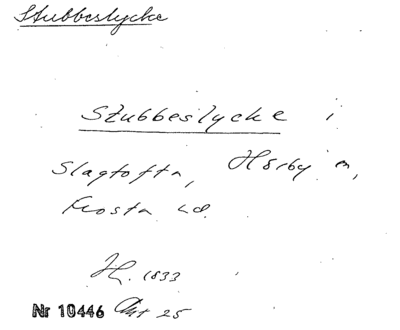 Stubbeslycke
Stubbeslycke i
Slagtofta, Hörby sn,
Frosta hd.
H. 1833
Nr 10446 Akt 25